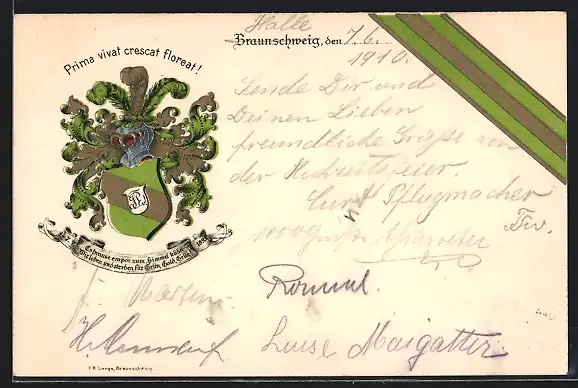 Prima vivat crescat floreat!
Halle
Braunschweig, den 7.6.
1910.
Sende Dir und
Deinen Lieben
freundliche Grüße von
der Hochzeitsfeier.
Curt Pflugmacher
1000 Grüße
Es brause empor zum Himmel
Wir leben und sterben für Grün, Gold, Grün!
Martin
Rommel
Luise Maigatter
F. K. Lange, Braunschweig